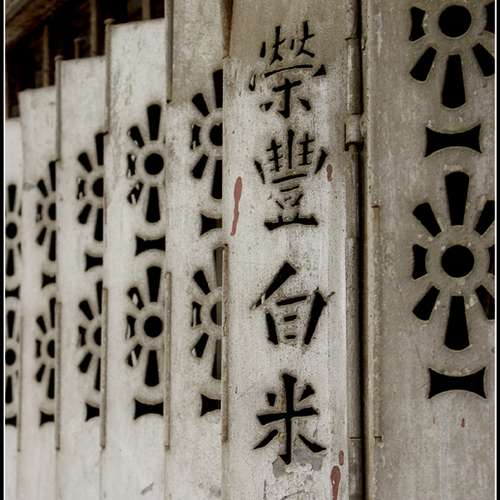 榮豐白米